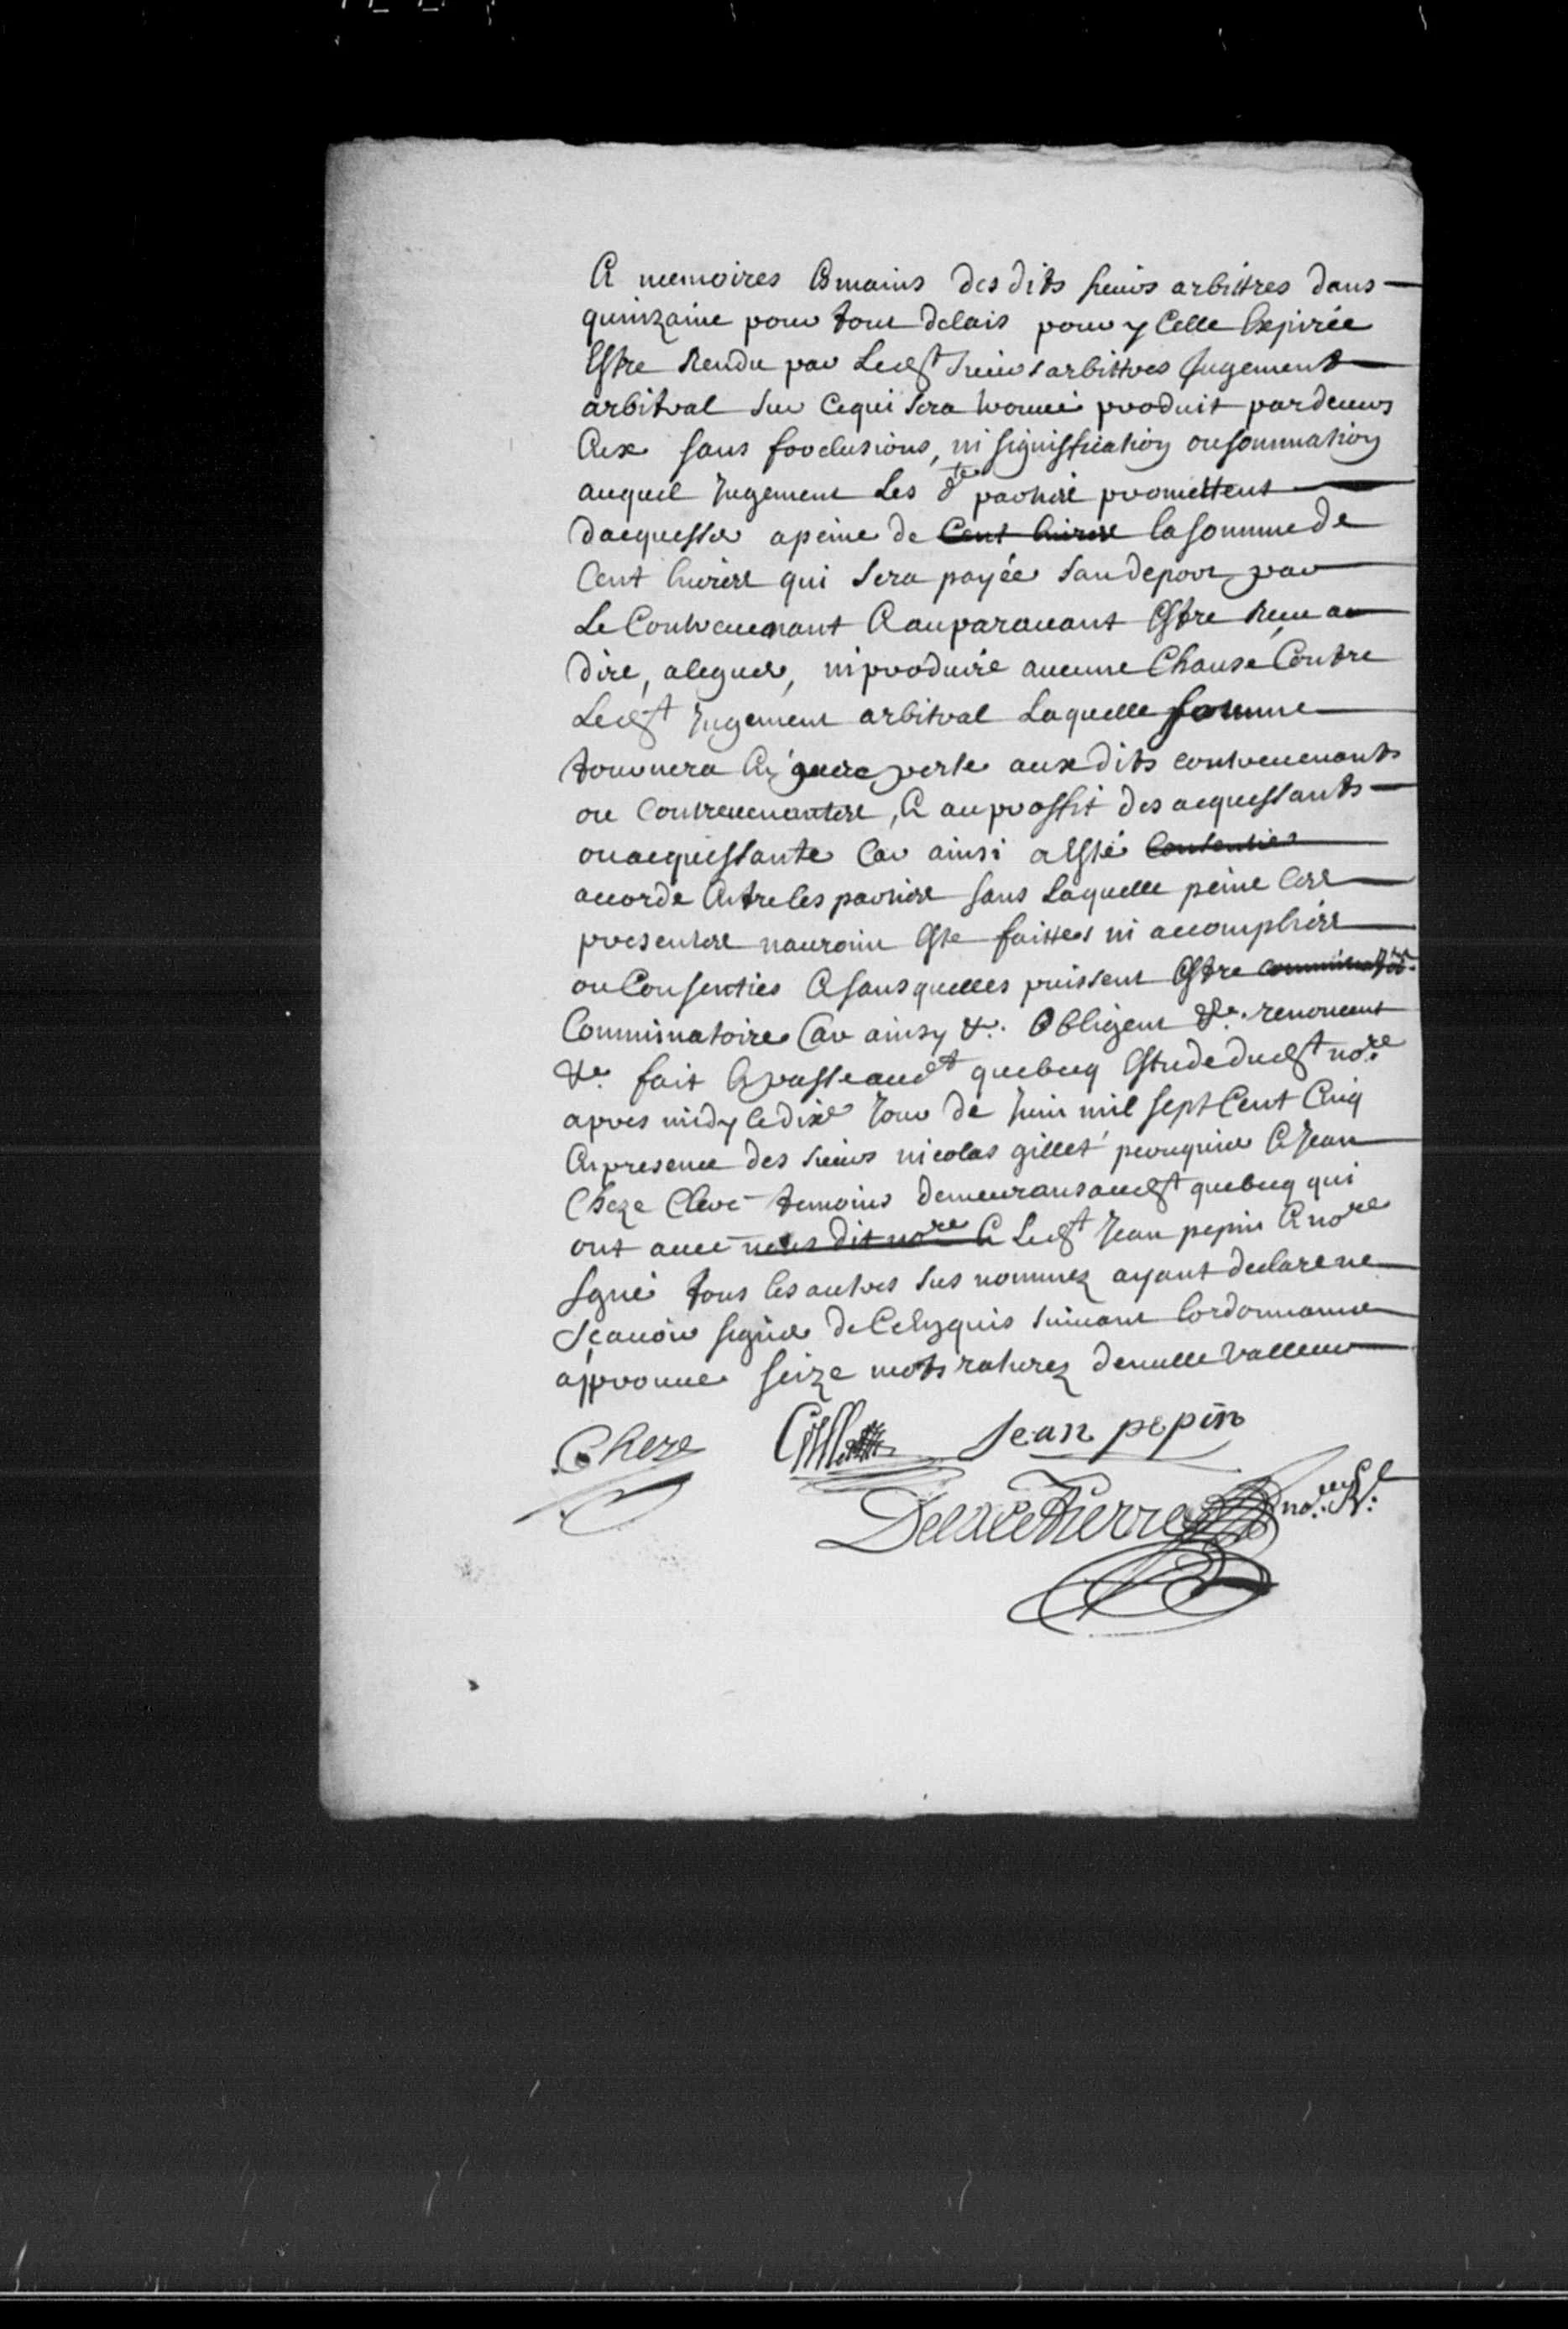 Et memoires Es mains des dits sieurs arbittres dans
quinzaine pour tour delais pour y celle Expirée
Estre Rendu par Lesdt sieurs arbittres Jugement
arbitral sur cequi sera trouué produit pardeuers
Eux sans forclusions, ni signiffication ousommation
auquel Jugement Les dtes partiese promettent
dacquesser apeine de Cent liurese lasomme de
Cent liurese qui sera payée sandeport par
Le Contreuenant Et auparauant Estre Receu au
dire, aleguer, niproduire aucune Chause Contre
Ledt Jugement arbitral Laquelle somme
tournera En pure perte aux dits contreuenants
ou Contreuenantese, Et auproffit des acquessants
ouacquiessante Car ainsi aEsté Consenties
accordé Entre les partiese sans Laquelle peine Cese
presentese nauroint Esté faittes ni accompliese
ou Consenties Et sansquelles puissent Estre comminatoire
Comminatoire Car ainsy &c. Obligent &c. renoncent
&c. fait Et passé audt quebecq Estude dudt nore
apres midy ledixe Jour de Juin mil sept Cent Cinq
En presence des sieurs nicolas gillet peruquier Et Jean
Cheze Clerc temoins demeurans audt quebecq qui
ont auec nous dit nore Et Ledt Jean pepin Et nore
signé tous les autres sus nommez ayant declare ne
sçauoir signer de Ce Enquis suiuant lordonnance
approuué seize mots raturez denulle valleur
Cheze Gillet Jean pepin
DelaCetierre no.re Rl.